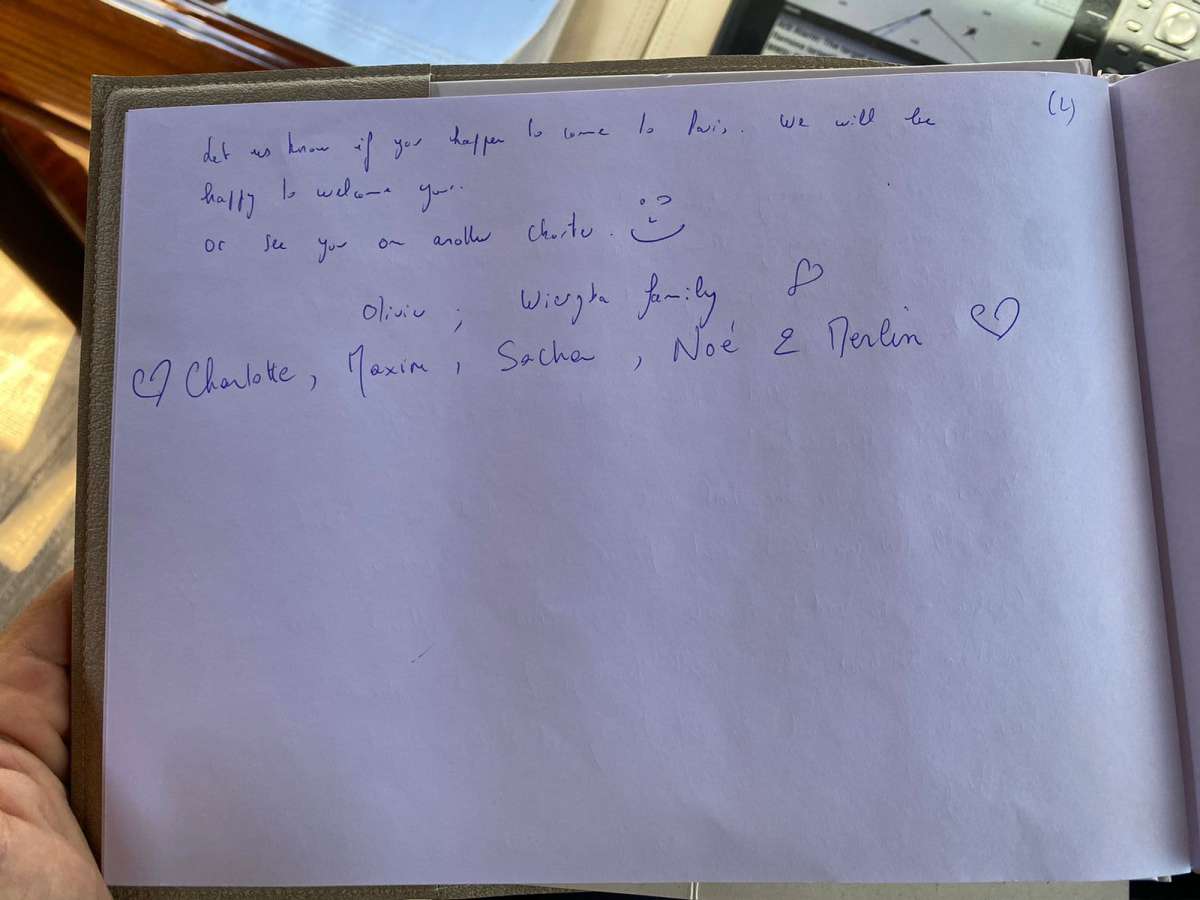 (2)
Let us know if you happen to come to Paris. We will be
happy to welcome you.
or see you on another charter.
Olivier ; family
Charlotte, Maxim, Sacha, Noé & Merlin